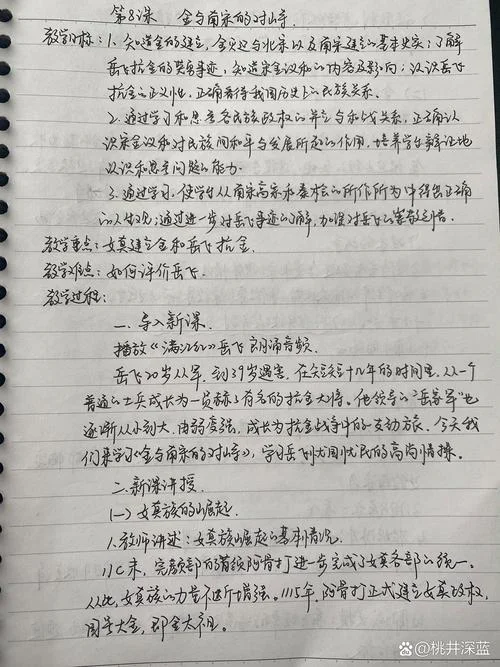 第8课 金与南宋的对峙
教学目标:1.知道金的建立,金灭辽与北宋以及南宋建立的基本史实;了解
岳飞抗金的英勇事迹,知道宋金议和的内容及影响;认识岳飞
抗金的正义性,正确看待我国历史上的民族关系.
2.通过学习和思考各民族政权的并立与和战关系,正确认
识宋金议和对民族间和平与发展所起的作用,培养学生辩证地
认识和思考问题的能力.
3.通过学习,使学生从南宋高宗和秦桧的所作所为中得出正确
的人生观;通过进一步对岳飞事迹的了解,加深对岳飞的崇敬之情.
教学重点:女真建立金和岳飞抗金.
教学难点:如何评价岳飞.
教学过程:
一.导入新课.
播放《满江红》岳飞朗诵音频.
岳飞20岁从军,到39岁遇害,在短短十几年的时间里,从一个
普通的士兵成长为一员赫赫有名的抗金大将.他领导的"岳家军"也
逐渐从小到大,由弱变强,成长为抗金战争中的主力军.今天我
们来学习《金与南宋的对峙》,学习岳飞忧国忧民的高尚情操.
二.新课讲授.
(一)女真族的崛起.
1.教师讲述:女真族崛起的基本情况.
11C末,完颜部的首领阿骨打进一步完成了女真各部的统一.
从此,女真族的力量不断增强。1115年,阿骨打正式建立女真政权,
国号大金,即金太祖。
@桃井深蓝